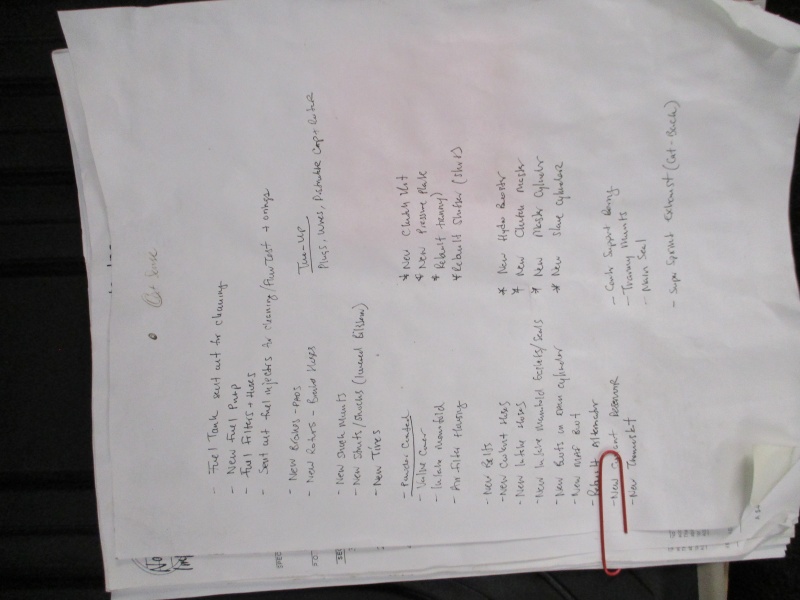 - Fuel Tank sent out for cleaning
- New Fuel Pump
- Fuel Filters + Hoses
- Sent out fuel injectors for cleaning/Flow Test + orings
- New Brakes - Pads
- New Rotors - Brake Hoses
Tune-Up
Plugs, Wires, Distributor Cap + Rotor
- New Shock Mounts
- New Struts/Shocks
- New Tires
- Powder Coated
- Valve Cover
- Intake Manifold
- Air Filter Housing
* New Clutch Kit
* New Pressure Plate
* Rebuilt tranny
* Rebuilt Shifter (Short)
- New Belts
- New Coolant Hoses
- New Intake Hoses
- New Intake Manifold Gaskets/Seals
- New Boots
- New Boot
- Rebuilt Alternator
- New Coolant Reservoir
- New Thermostat
* New Hydro Booster
* New Clutch Master
* New Master Cylinder
* New Slave Cylinder
- Center Support Bearing
- Tranny Mounts
- Main Seal
- Super Sprint Exhaust (Cat-Back)